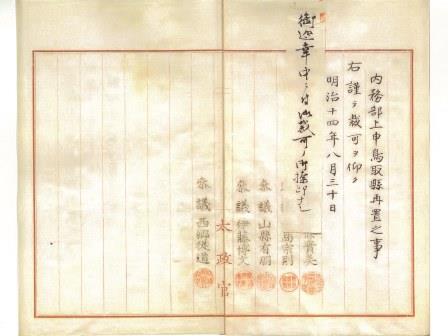 内務部上申鳥取縣再置之事
右謹テ裁可ヲ仰ク
明治十四年八月三十日
御巡幸中ニ付 裁可ノ御 印
實美
宗則
参議 山縣有朋
参議 伊藤博文
参議 西郷従道
太政官